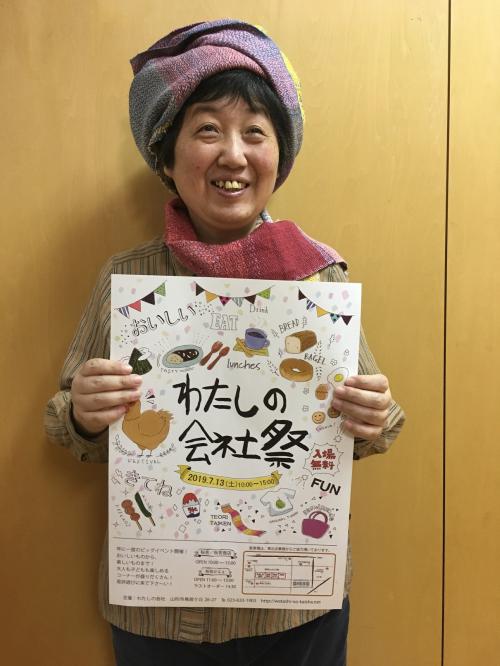 おいしい
EAT
Drink
BREAD
BAGEL
TASTY
lunches
わたしの
会社祭
入場
無料
2019.7.13(土)10:00〜15:00
FUN
きてね
TEORI
TAIKEN
年に一度のビッグイベント開催!
おいしいものから、
楽しいものまで!
大人も子どもも楽しめる
コーナーが盛りだくさん!
是非遊びに来て下さーい!
OPEN 10:00〜15:00
OPEN 11:00〜15:00
ラストオーダー 14:30
主催:わたしの会社
http://watashi-no-kaisha.net